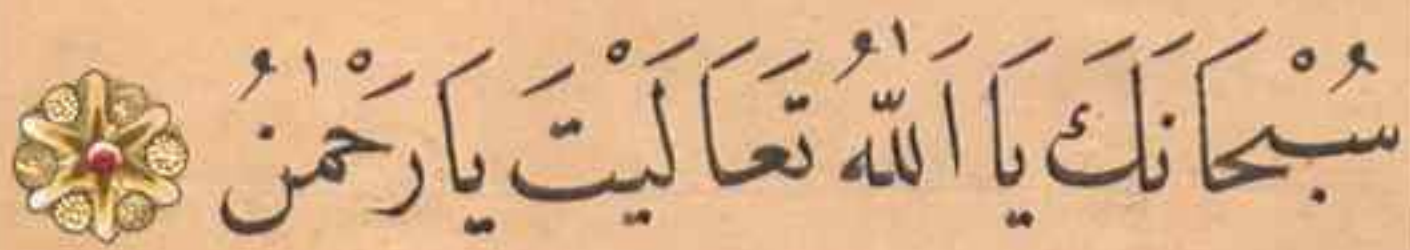 سُبْحَانَكَ يَا اَللّٰهُ تَعَالَيْتَ يَا رَحْمٰنُ